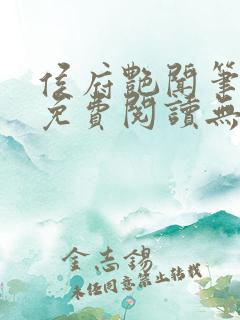 侯府艷聞筆
免費閱讀無
金志錫
未經同意禁止轉載